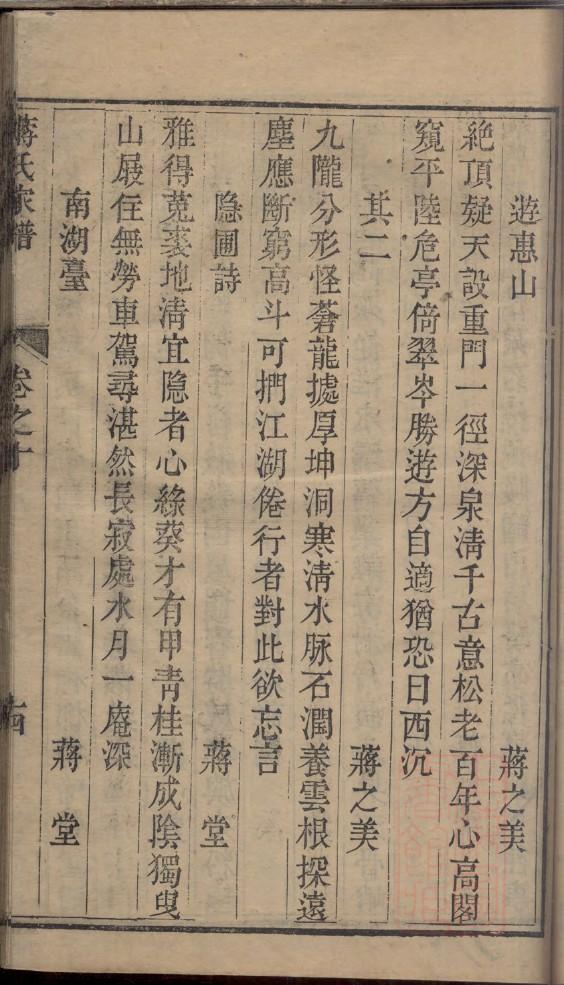 遊惠山 蔣之美
絶頂疑天設重門一徑深泉清千古意松老百年心高閣
窺平陸危亭倚翠岑勝遊方自適猶恐日西沉
其二 蔣之美
九隴分形怪蒼龍據厚坤洞寒清水脉石潤養雲根探遠
塵應斷窮高斗可捫江湖倦行者對此欲忘言
隐圃詩 蔣堂
雅得菟裘地清宜隐者心綠葵才有甲靑桂漸成陰獨曳
山屐徃無勞車駕尋湛然長寂處水月一庵深
南湖臺 蔣堂
蔣氏家譜 卷之十